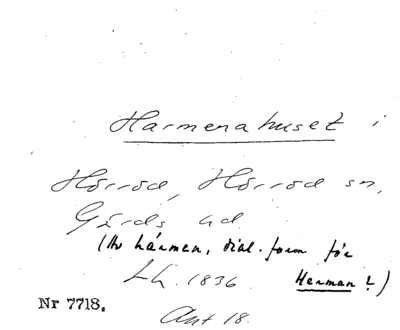 Harmenahuset i
Hörröd, Hörröd sn,
Gärds hd.
(Av harmen, dial. form för
Lh. 1836. Herman?)
Nr 7718.
Akt 18.